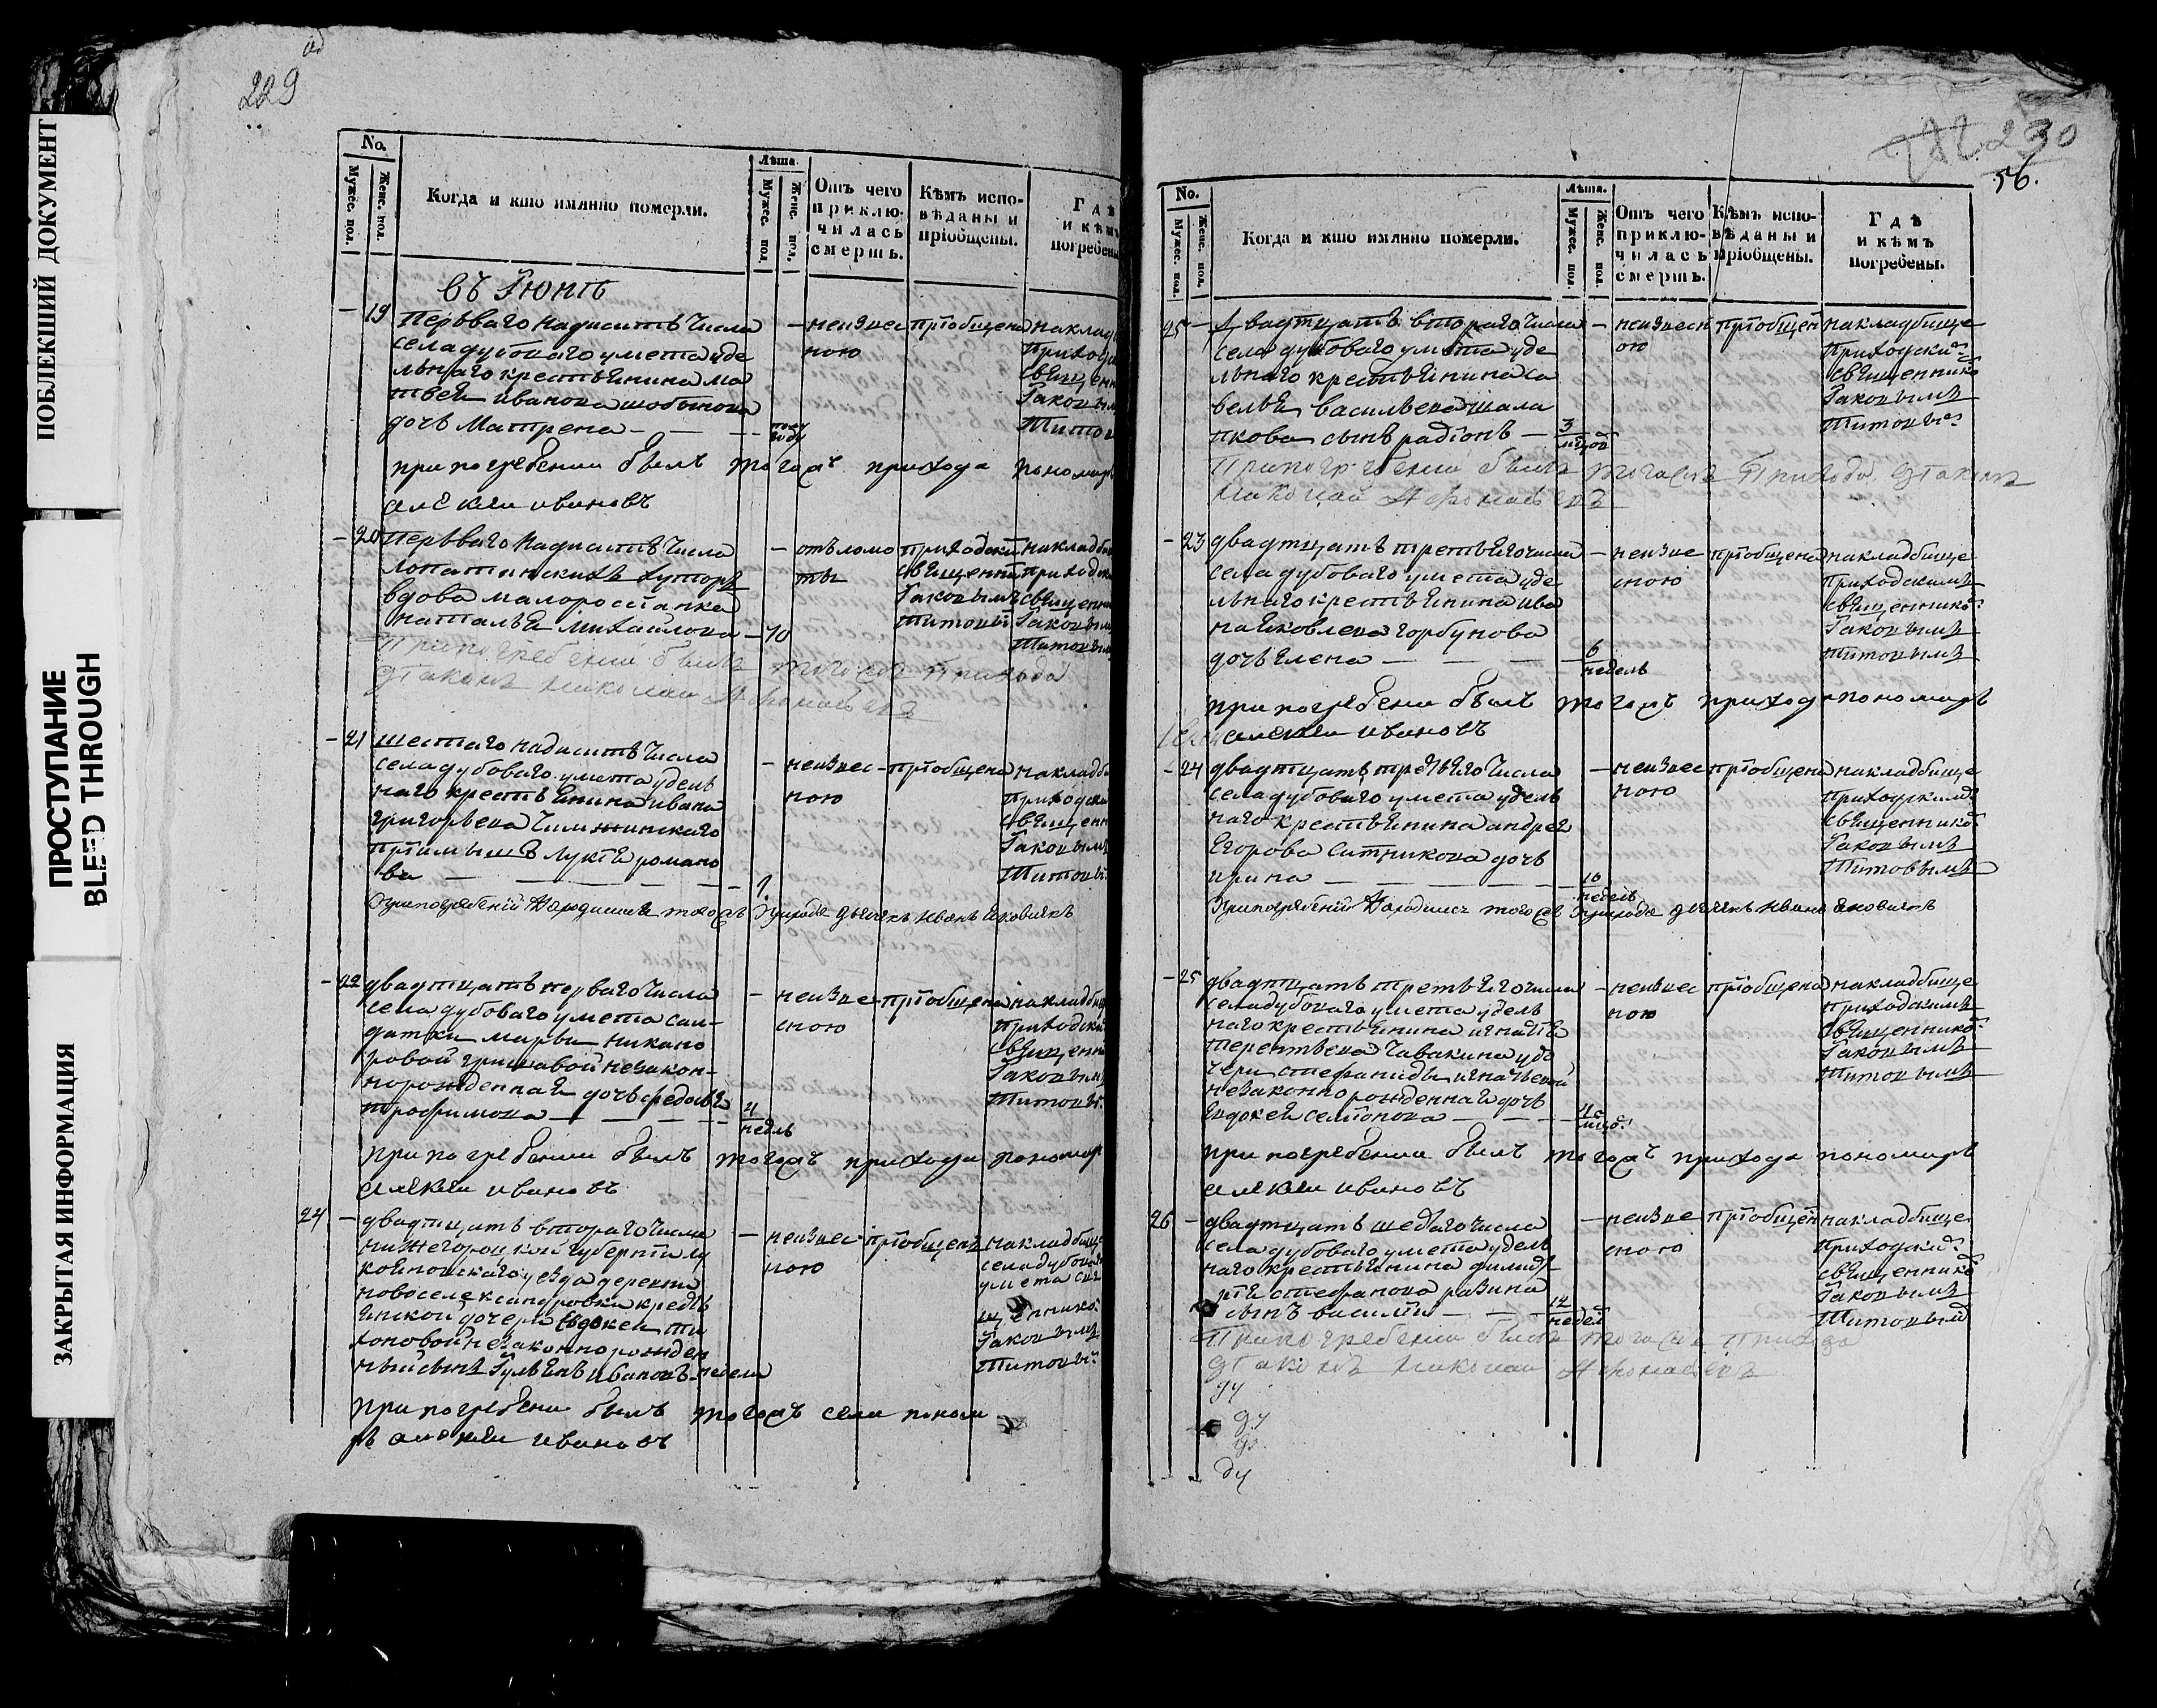 ПОБЛЕКШИЙ ДОКУМЕНТ
ПРОСТУПАНИЕ
BLEED THROUGH
ЗАКРЫТАЯ ИНФОРМАЦИЯ
229
No.
Мужес. пол.
Женс. пол.
Когда и кто имянно померли.
Лѣта.
Мужес. пол.
Женс. пол.
Отъ чего приклю-чилась смерть.
Кѣмъ испо-вѣданы и пріобщены.
Гдѣ и кѣмъ погребены
въ Іюнѣ
19 Перьваго надцать числа
села дубоваго умета уде
льнаго крестьянина ма
твея иванова
дочь Матрена
полу году
неизвес
ною
пріобщена
при погребении былъ тогожъ прихода пономарь
алекѣи ивановъ
20 Перьваго надцать числа
лопатинскихъ хуторъ
вдова малоросіянка
наталья михайлова 70
приходским
священни
Іаковымъ
Титовы
При погребении былъ тогожъ прихода
діаконъ николаи
21 шестаго надцать числа
села дубоваго умета удель
наго крестьянина ивана
григорьева
романо
ва
неизвес
ною
пріобщена
При погребеніи находился тогожъ прихода дьячекъ иванъ яковлевъ
22 двадцать перваго числа
села дубоваго умета сол-
датки марьи никано
ровой незакон-
норожденная дочь федосья
трофимова
4
недль
неизве
сною
пріобщена
при погребении былъ тогожъ прихода пономар
алекѣи ивановъ
24 двадцать втораго числа
нижегороцкой губерніи лу
кояновскаго уезда деревни
новоселександровки кресть
янской дочери евдокеи ти
хоновой незаконнорожден
ныи сынъ Іульянъ ивановъ неделя
неизвес
ною
пріобщенъ
на кладбище
села дубова
умета свя
щеннико
Іаковымъ
Титовы
при погребени былъ тогожъ села понома
рь алекѣи ивановъ
230
56.
No.
Мужес. пол.
Женс. пол.
Когда и кто имянно померли.
Лѣта.
Мужес. пол.
Женс. пол.
Отъ чего приклю-чилась смерть.
Кѣмъ испо-вѣданы и пріобщены.
Гдѣ и кѣмъ погребены.
25 Двадцать втораго числа
села дубоваго умета уде
льнаго крестьянина са
велья васильева шала
пкова сынъ радіонъ
3
неизвесн
ою
пріобщен
на кладбище
Приходски
священнико
Іаковымъ
Титовы
При погребении былъ тогожъ Прихода діаконъ
николаи
23 двадцать третьяго числа
села дубоваго умета уде
льнаго крестьянина ива
на яковлева горбунова
дочь елена
6
недель
неизве
сною
пріобщена
на кладбище
Приходскимъ
священнико
Іаковымъ
Титовымъ
при погребени былъ тогожъ приход пономарь
алекѣи ивановъ
24 двадцать третьяго числа
села дубоваго умета удель
наго крестьянина андрея
Егорова Ситникова дочь
ирина
10
недель
неизвес
ною
пріобщена
на кладбище
Приходскимъ
священнико
Іаковымъ
Титовымъ
При погребеніи находился тогожъ Прихода дьячекъ иванъ яковлевъ
25 двадцать третьяго числа
села дубоваго умета удель
наго крестьянина игнатья
терентьева чавакина у до
чери стефаниды игнатьевой
незаконнорожденная дочь
Евдокея семіонова
неизвес
ною
пріобщена
на кладбище
Приходскимъ
священнико
Іаковымъ
Титовымъ
при погребении былъ тогожъ прихода пономарь
алекѣи ивановъ
26 двадцать шестаго числа
села дубоваго умета удель
наго крестьянина
стефанова разина
сынъ василіи
12
недел
неизве
сною
пріобщен
на кладбище
Приходски
священнико
Іаковымъ
Титовым
При погребении былъ тогожъ Прихода
діаконъ николаи
ду
ду
ду